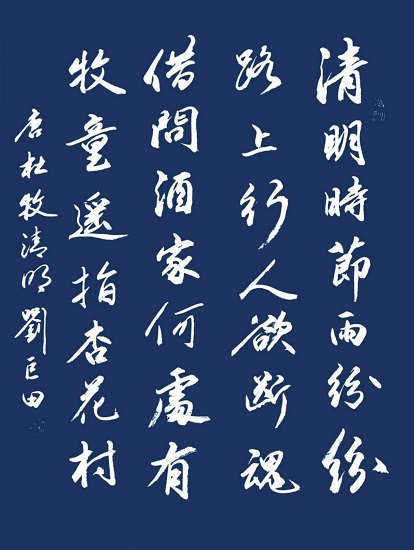 清明時節雨紛紛
路上行人欲斷魂
借問酒家何處有
牧童遥指杏花村
唐杜牧清明劉巨田